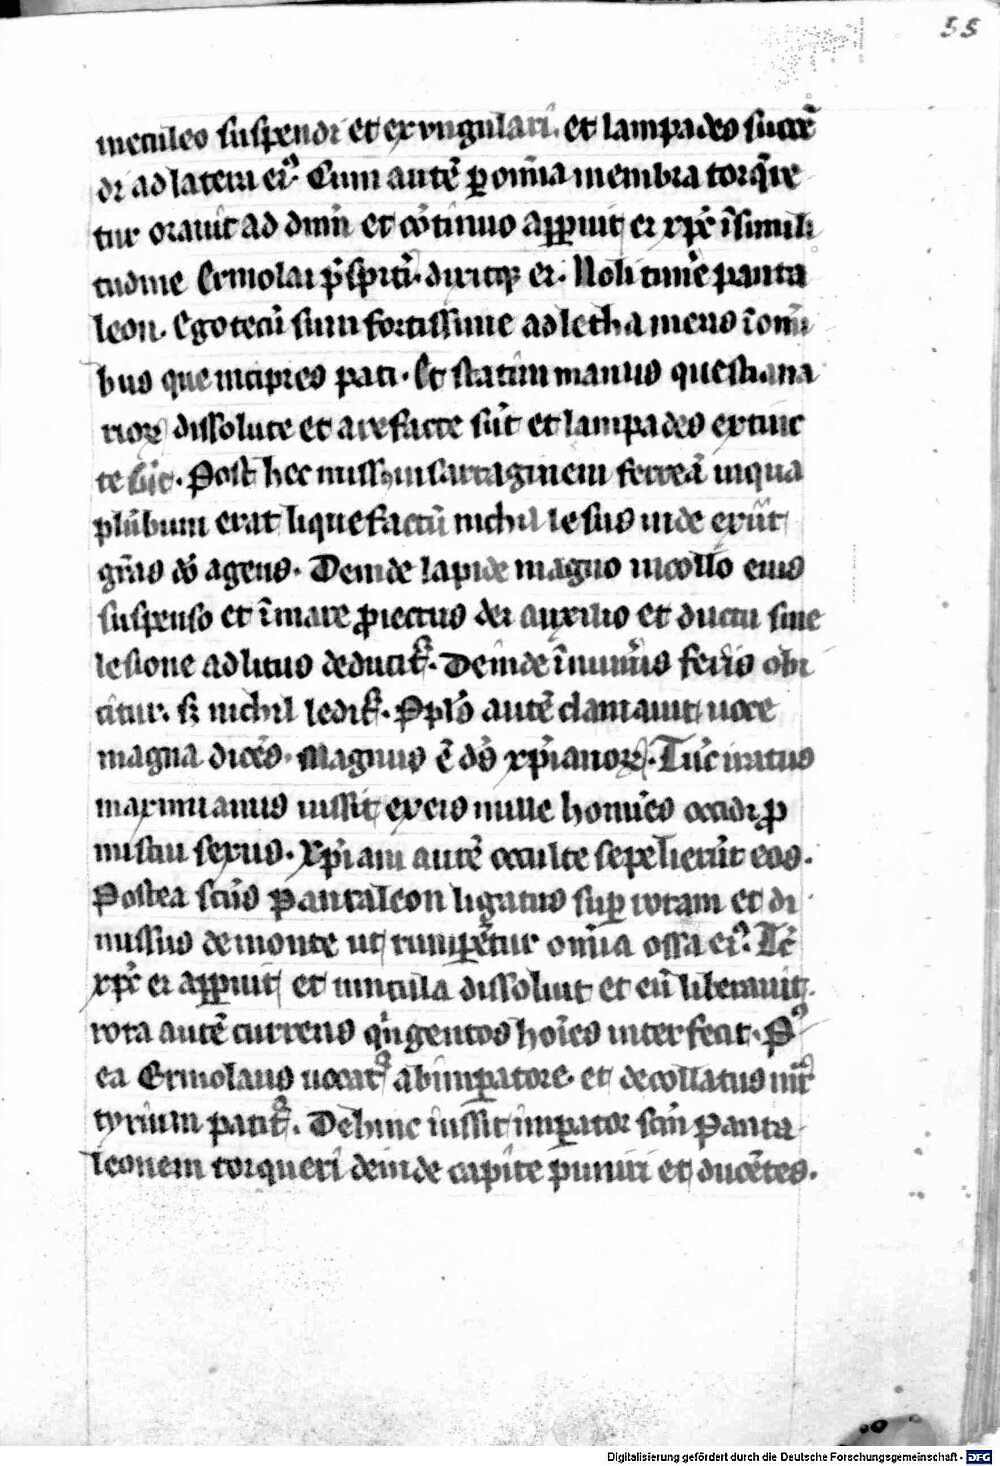 55
ineculeo suspendi et exungulari. et lampades succē
di ad latera eiꝰ. Cum autē ꝑ om̄ia membra torq̄re
tur orauit ad dn̄m et cōtinuo apꝑuit ei xp̄c ī simili
tudine Ermolai p̄sƀiti. dixitqꝫ ei. Noli timē panta
leon. Ego tecū sum fortissime adletha meus ī omī
bus que incipies pati. Et statim manus questiana
rioꝝ dissolute et arefacte sūt et lampades extinc
te sūt. Post hec missus in sartaginem ferreā in qua
plūbum erat liquefactū nichil lesus inde exiit
grās dō agens. Deinde lapide magno in collo eius
suspenso et ī mare ꝓiectus dei auxilio et ductu sine
lesione ad litus deducitᷣ. Deinde ī nūmis feris obi
citur. sꝫ nichil leditᷣ. Pplūs autē clamauit uoce
magna dicēs. Magnus ē dꝰ xp̄ianoꝝ. Tūc iratus
maximianus iussit ex eis mille homīes occidi ꝓ
miscui sexus. Xp̄iani autē occulte sepelierūt eos.
Postea scūs Pantaleon ligatus suꝑ rotam et di
missus de monte ut rumꝑētur om̄ia ossa eiꝰ. Tc̄
xp̄c ei apꝑuit et uincula dissoluit et eū liberauit.
rota autē currens qͥngentos hoīes interfecit. Pꝰ
ea Ermolaus uocatᷣ ab imꝑatore. et decollatus mr̄
tyrium patitᷣ. Dehinc iussit imꝑator scm̄ Panta
leonem torqueri deinde capite puniri et ducētes.
Digitalisierung gefördert durch die Deutsche Forschungsgemeinschaft - DFG